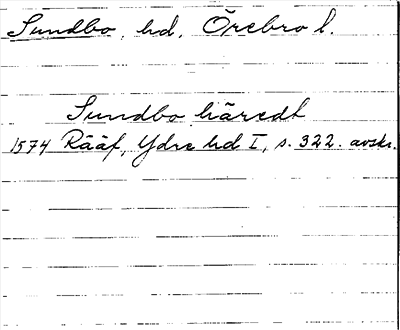 Sundbo, hd, Örebro l.
Sundbo häredt
1574 Rääf, Ydre hd I, s. 322. avskr.